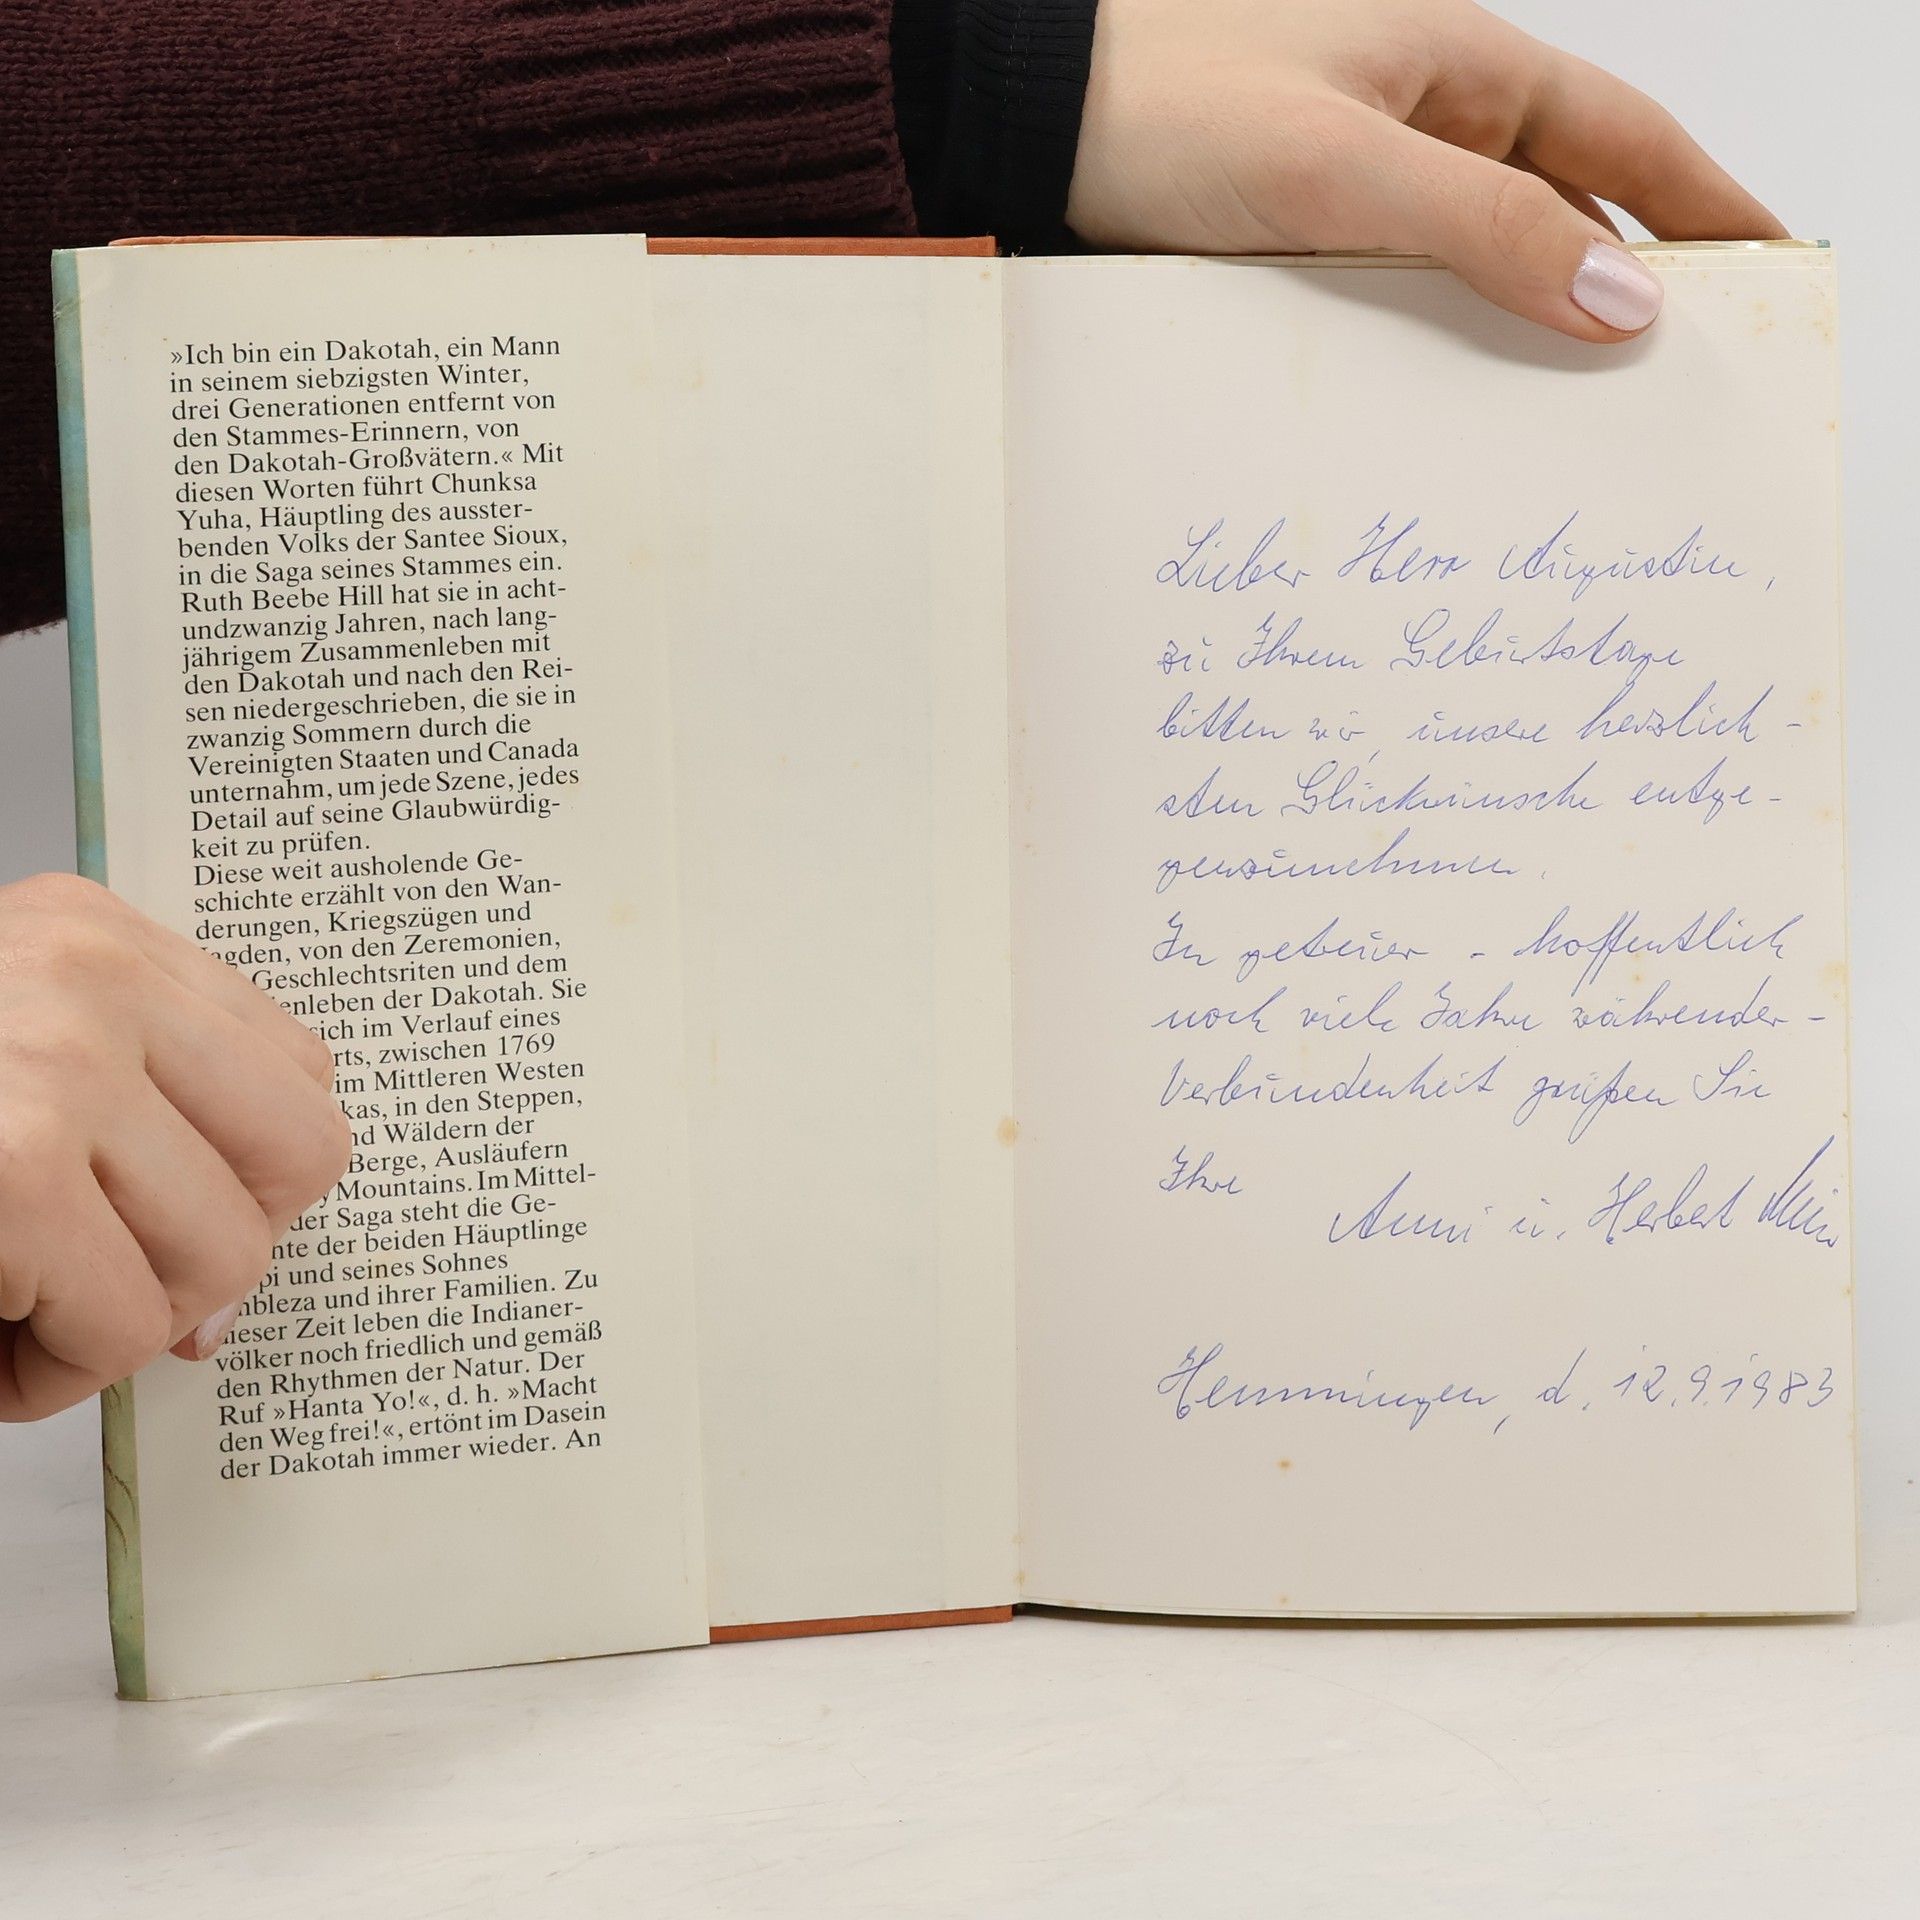 »Ich bin ein Dakotah, ein Mann
in seinem siebzigsten Winter,
drei Generationen entfernt von
den Stammes-Erinnern, von
den Dakotah-Großvätern.« Mit
diesen Worten führt Chunksa
Yuha, Häuptling des ausster-
benden Volks der Santee Sioux,
in die Saga seines Stammes ein.
Ruth Beebe Hill hat sie in acht-
undzwanzig Jahren, nach lang-
jährigem Zusammenleben mit
den Dakotah und nach den Rei-
sen niedergeschrieben, die sie in
zwanzig Sommern durch die
Vereinigten Staaten und Canada
unternahm, um jede Szene, jedes
Detail auf seine Glaubwürdig-
keit zu prüfen.
Diese weit ausholende Ge-
schichte erzählt von den Wan-
derungen, Kriegszügen und
agden, von den Zeremonien,
Geschlechtsriten und dem
ienleben der Dakotah. Sie
sich im Verlauf eines
rts, zwischen 1769
im Mittleren Westen
kas, in den Steppen,
nd Wäldern der
Berge, Ausläufern
y Mountains. Im Mittel-
der Saga steht die Ge-
hte der beiden Häuptlinge
pi und seines Sohnes
mbleza und ihrer Familien. Zu
dieser Zeit leben die Indianer-
völker noch friedlich und gemäß
den Rhythmen der Natur. Der
Ruf »Hanta Yo!«, d. h. »Macht
den Weg frei!«, ertönt im Dasein
der Dakotah immer wieder. An
Lieber Herr Augustin,
zu Ihrem Geburtstage
bitten wir, unsere herzlich-
sten Glückwünsche entge-
genzunehmen.
In getreuer - hoffentlich
noch viele Jahre währender -
Verbundenheit grüßen Sie
Ihre
Anni u. Herbert
Hemmingen, d. 12.9.1983